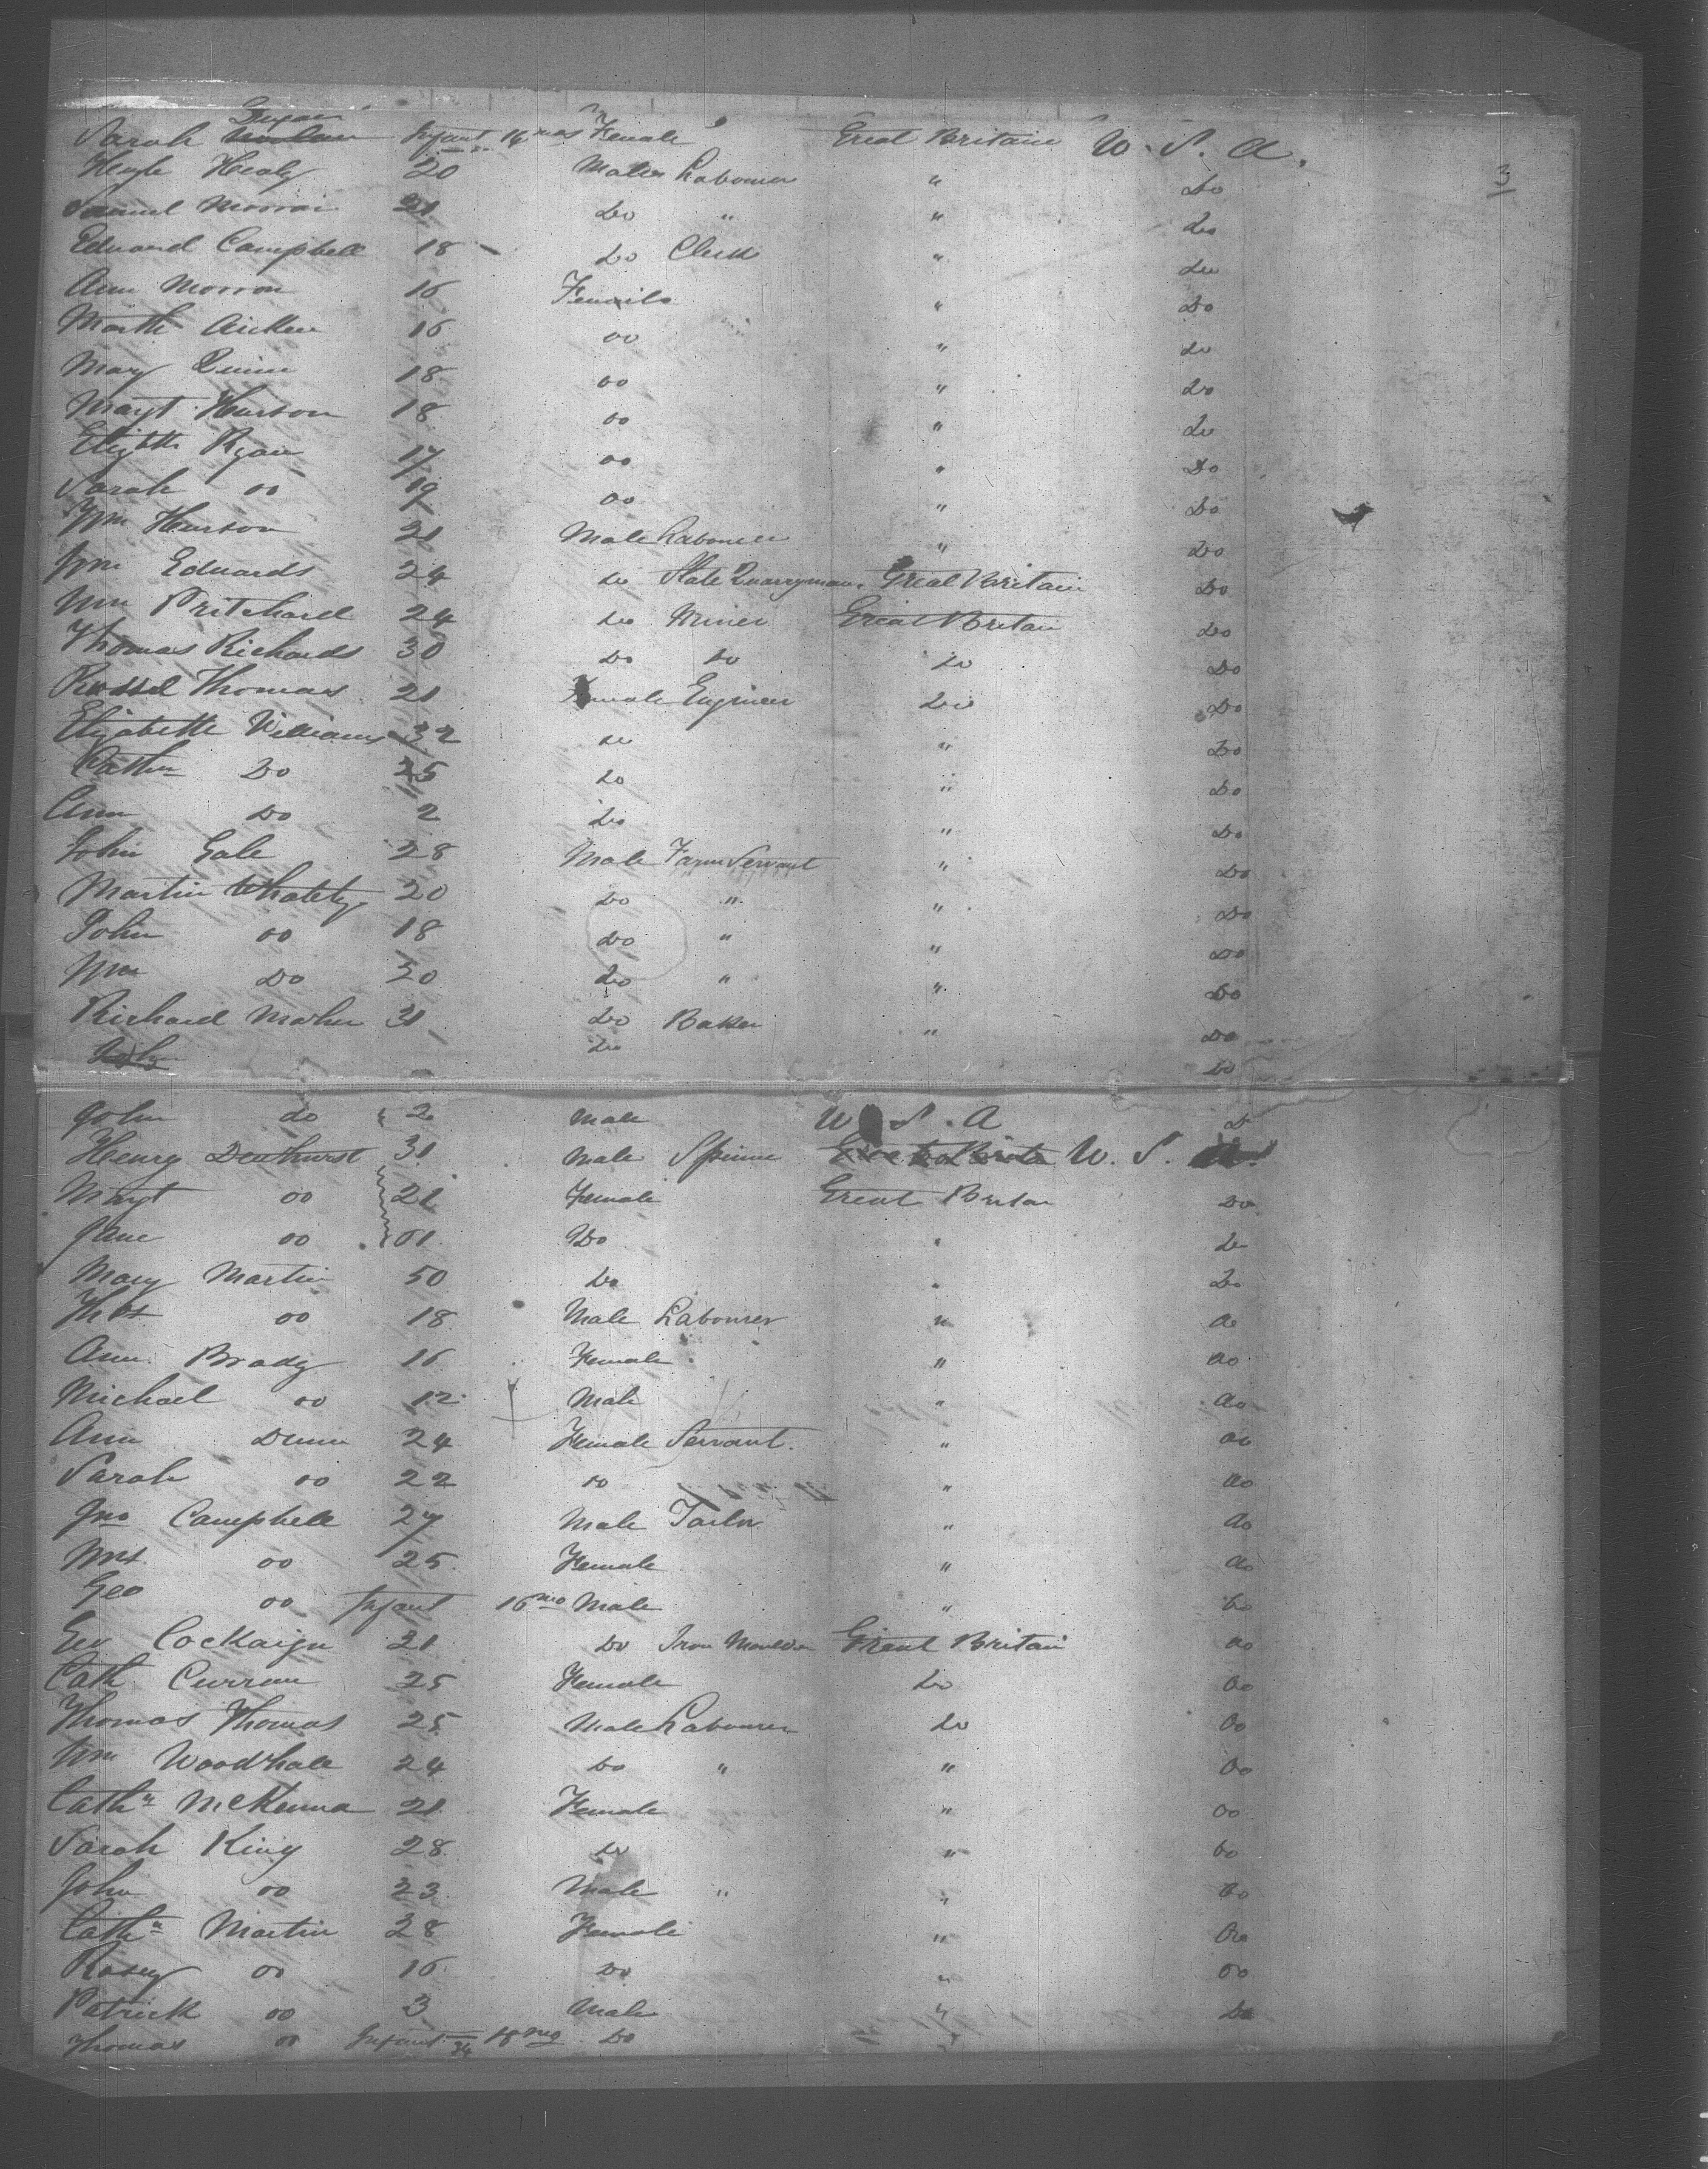 Dugan
Sarah Infant 14 mos Female Great Britain U. S. A.
Hugh Healy 20 Male Labourer " Do 3
Samuel Morrow 21 Do " " Do
Edward Campbell 18 Do Clerk " Do
Ann Morrow 16 Female " Do
Marth Aicken 16 Do " Do
Mary Quinn 18 Do " Do
Margt Hurson 18 Do " Do
Elizbth Ryan 17 Do " Do
Sarah Do 19 Do " Do
Wm Hurson 21 Male Labourer " Do
Wm Edwards 24 Do Slate Quarryman Great Britain Do
Wm Pritchard 24 Do Miner Great Britain Do
Thomas Richards 30 Do Do Do Do
Thomas 21 male Engineer Do Do
Elizabeth Williams 32 Do " Do
Cathn Do 25 Do " Do
Ann Do 2 Do " Do
John Gale 28 Male Farm Servant " Do
Martin Whalety 20 Do " " Do
John Do 18 Do " " Do
Wm Do 50 Do " " Do
Richard Maher 31 Do Baker " Do
John Do Do
John do 2 Male U S. A Do
Henry Dewhurst 31 Male Spinner U. S. A.
Margt Do 21 Female Great Britan Do
Jane Do 01 Do " Do
Mary Martin 50 Do " Do
Thos Do 18 Male Labourer " Do
Ann Brady 16 Female " Do
Michael Do 12 Male " Do
Ann Dunn 24 Female Servant. " Do
Sarah Do 22 Do " Do
Jno Campbell 27 Male Tailor " Do
Mrs Do 25 Female " Do
Geo Do Infant 16 mo Male " Do
Geo Cockaign 21 Do Iron Moulder Great Britain Do
Cath Curran 25 Female Do Do
Thomas Thomas 25 Male Labourer Do Do
Wm Woodhall 24 Do " " Do
Cathn McKenna 21 Female " Do
Sarah King 28 Do " Do
John Do 23 Male " " Do
Cathn Martin 28 Female " Do
Rosey Do 16 Do " Do
Patrick Do 3 Male " Do
Thomas Do Infant 18 mo Do "